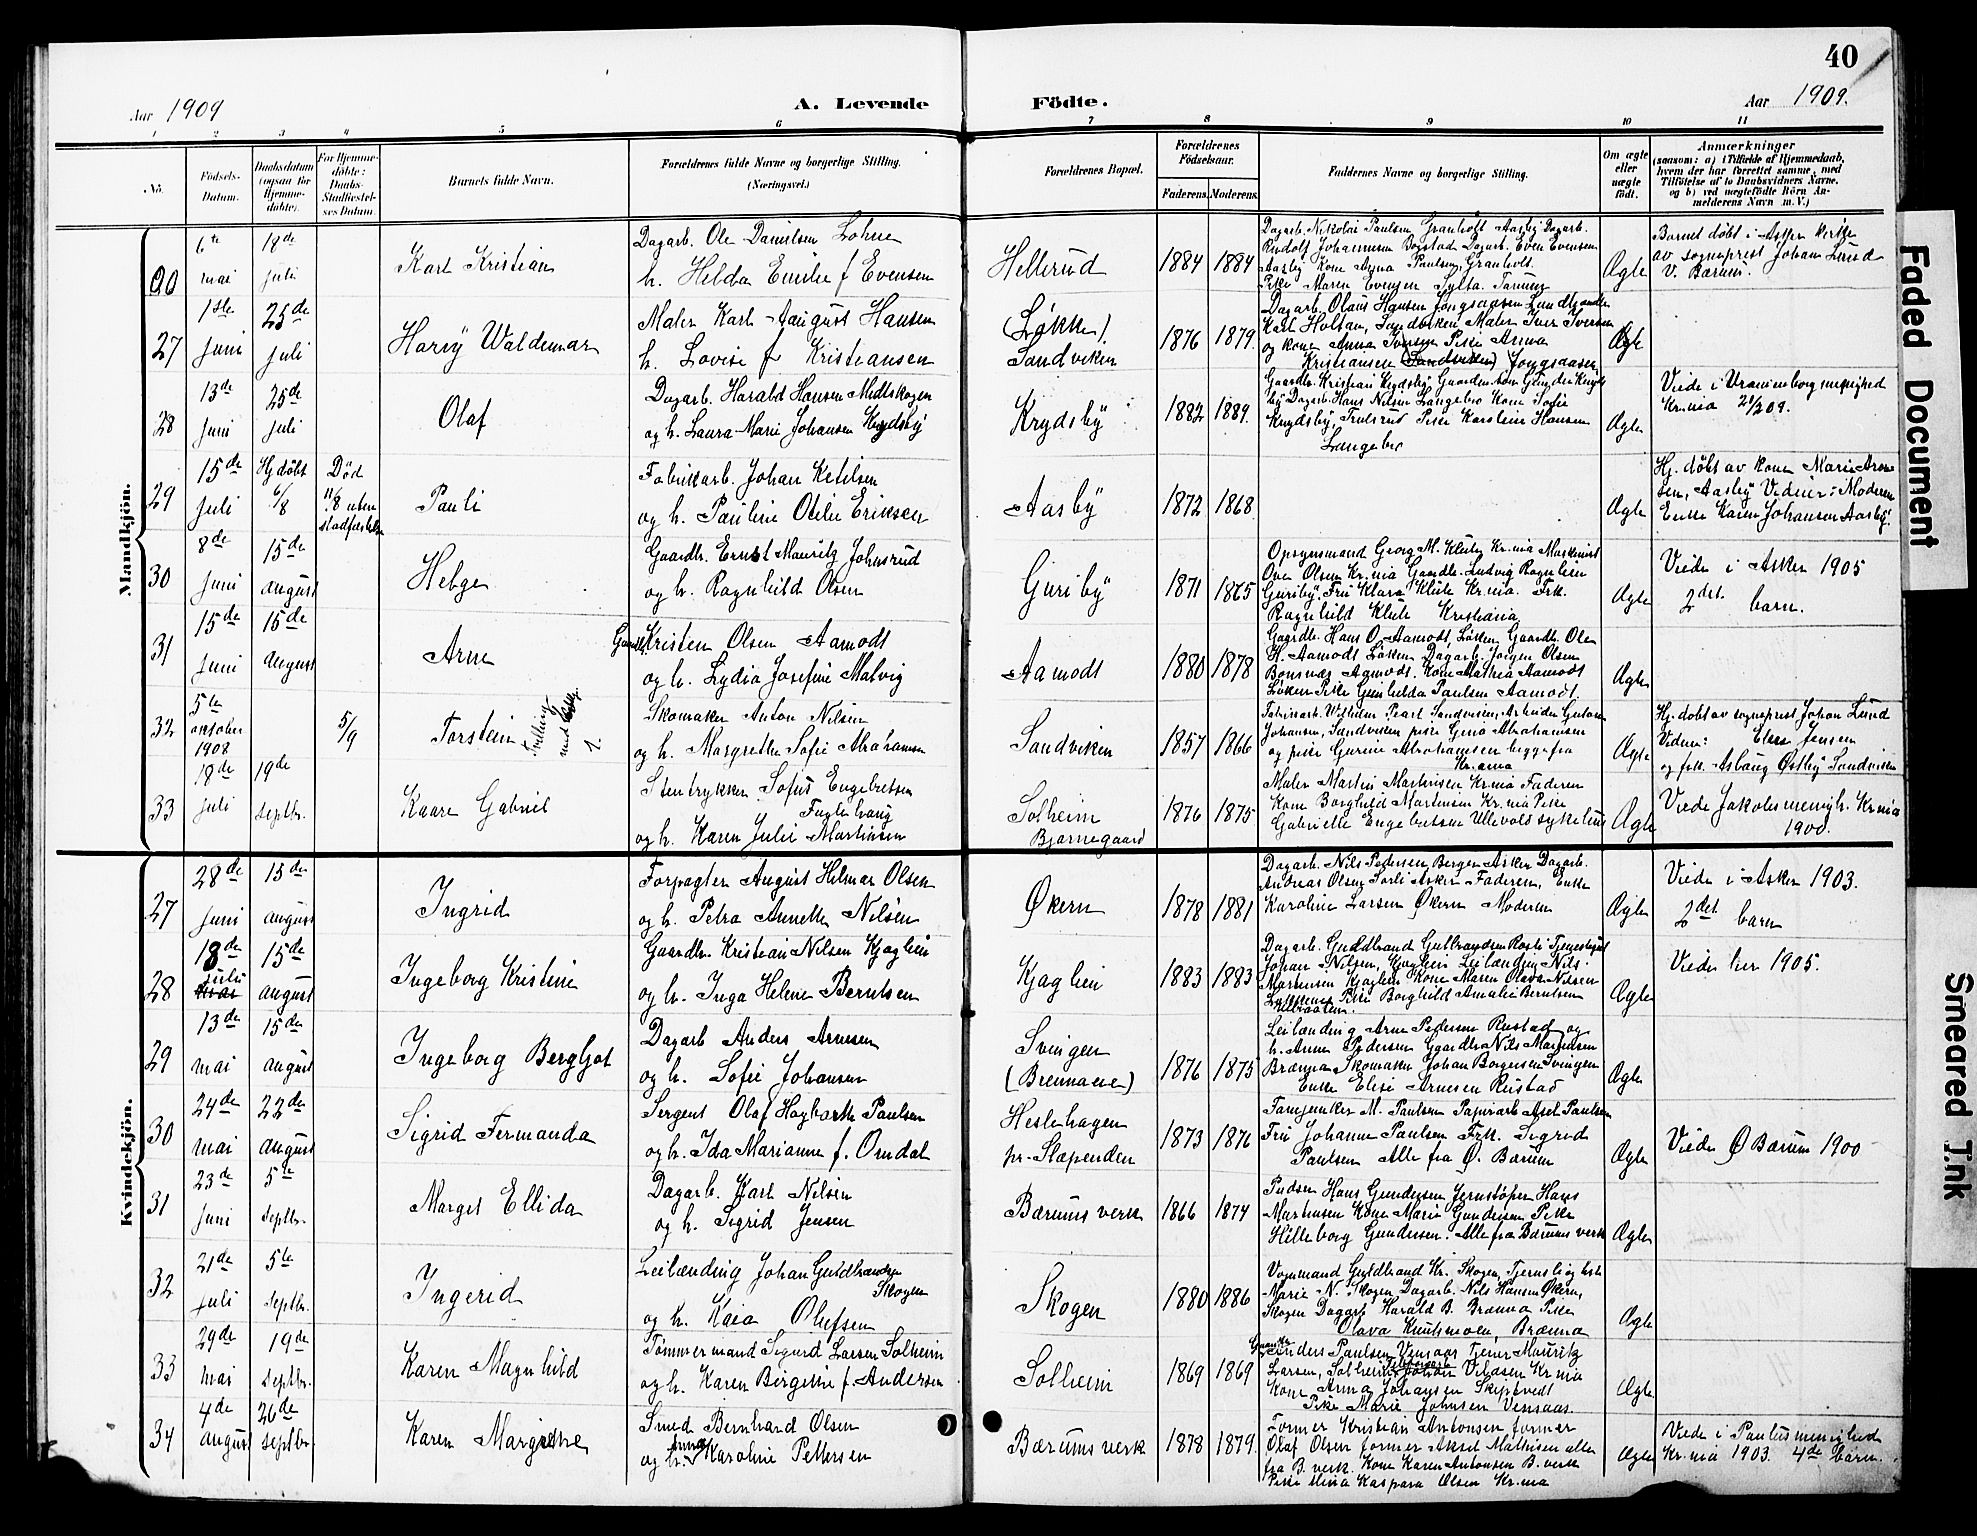 40
Aar 1909
A. Levende Födte.
Aar 1909.
1 2 3 4 5 6 7 8 9 10 11
No.
Födsels-Datum.
Daabsdatum (ogsaa for Hjemme-döbte).
For Hjemme-döbte: Daabs-Stadfæstel-ses Datum.
Barnets fulde Navn.
Forældrenes fulde Navne og borgerlige Stilling. (Næringsvei.)
Forældrenes Bopæl.
Forældrenes Födselsaar.
Faderens. Moderens.
Faddernes Navne og borgerlige Stilling.
Om ægte eller uægte födt.
Anmærkninger
(saasom: a) i Tilfælde af Hjemmedaab, hvem der har forrettet samme, med Tilföielse af to Daabsvidners Navne, og b) ved uægtefödte Börn An-melderens Navn m. V.)
Mandkjön.
6te mai
18de juli
Karl Kristian
Dagarb. Ole Danielsen Lohne
h. Helda Emilie f Evensen
Hellerud
1884 1884
Dagarb. Nikolai Paulsen Granholt Aasby Dagarb.
Rudolf Johannesen Bogstad Dagarb. Even Evensen
Aasby Kone Anna Paulsen Granholt
Pike Maren Evensen Tanum
Ægte
Barnet döbt i Asker kirke
av sogneprest Johan Lund
V. Bærum.
27
1ste juni
25de juli
Harry Waldemar
Maler Karl August Hansen
h. Lovise f Kristiansen
(Løkke)
Sandviken
1876 1879
Dagarb. Olaus Hansen Jongsaasen
Karl Holtan, Sandviken Maler Iver Iversen
og kone Anna Iversen Pike Anna
Kristiansen (Sandviken) Jongsaasen
Ægte
28
13de juni
25de juli
Olaf
Dagarb. Harald Hansen Midtskogen
og h. Laura Marie Johansen Krydsby
Krydsby
1882 1889.
Gaardbr. Kristian Krydsby
by Dagarb. Hans Nilsen Langebro Kone Sofie
Krydsby, Trulsrud Pike Karoline Hansen
Langebro
Ægte
Viede i Uranienborg menighed
Kr.nia 21/2 09.
29
15de juli
Hj. döbt 6/8
Död 11/8 uden stadfæstelse
Pauli
Fabrikarb. Johan Ketilsen
og h. Pauline Otilie Eriksen
Aasby
1872 1868
Ægte
Hj. döbt av kone Marie Arne
sen, Aasby Vidner: Moderen
Enke Karen Johansen Aasby.
30
8de juni
15de august
Helge
Gaardbr. Ernst Mauritz Johnsrud
og h. Ragnhild Olsen
Guriby
1871 1865
Opsynsmand Georg M. Klute Kr.nia Maskinist
Ove Olsen Kr.nia Gaardbr. Ludvig
Guriby, Fru Klara Klute Kr.nia. Frk.
Ragnhild Klute Kristiania
Ægte
Viede i Asker 1905
2det barn.
31
15de juni
15de august
Arne
Gaardbr. Kristen Olsen Aamodt
og h. Lydia Josefine Malvig
Aamodt
1880 1878
Gaardbr. Hans O. Aamodt, Løken Gaardbr. Ole
H. Aamodt Løken Dagarb. Jörgen Olsen
Bonsnæs Aamodt. Kone Mathea Aamodt
Løken Pike Gunhilda Paulsen Aamodt.
Ægte
32
5te oktober 1908
5/9
Torstein
Tvilling
1.
Skomaker Anton Nilsen
og h. Margrethe Sofie Abrahamsen
Sandviken
1857 1866
Fabrikarb. Wilhelm Sandviken, Arbeider Gustav
Johansen, Sandviken pike Gina Abrahamsen
og pike Gurine Abrahamsen begge fra
Kr.ania
Ægte
Hj. dobt av sogneprest Johan Lund
Vidner: Jensen
og frk. Aslaug Østby Sandviken
33
18de juli
19de septbr.
Kaare Gabriel
Stentrykker Sofus Engebretsen
Fuglehaug
og h. Karen Julie Martinsen
Solheim
Bjørnegaard
1876 1875
Maler Martin Martinsen Kr.nia Faderen
Kone Borghild Martinsen Kr.nia Pike
Gabrielle Engebretsen Ullevold sykehus
Ægte
Viede Jakobs menigh. Kr.nia
1900.
Kvindekjön.
27
28de juni
15de august
Ingrid
Forpagter August Hilmar Olsen
og h. Petra Annette Nilsen
Økern
1878 1881
Dagarb. Nils Pedersen Berger Asker Dagarb.
Andreas Olsen Sorli Asker Faderen, Enke
Karoline Larsen Økern Moderen
Ægte
Viede i Asker 1903.
2det barn
28
18de juli
15de august
Ingeborg Kristine
Gaardbr. Kristian Nilsen Kjaglien
og h. Inga Helene Berntsen
Kjaglien
1883 1883
Dagarb. Guldbrand Gulbrandsen
Johan Nilsen, Kjaglien Leilænding Nils
Martinsen Kjaglien Kone Maren Olava Nilsen
Pike Borghild Amalie Berntsen
Ægte
Viede her 1905.
29
13de mai
15de august
Ingeborg Bergljot
Dagarb Anders Arnesen
og h. Sofie Johansen
Svingen
(Brennaene)
1876 1875
Leilænding Arne Pedersen Rustad og
h. Anne Pedersen Gaardbr. Nils Martinsen
Brænna Skomaker Johan Borgersen Svingen
Enke Elise Arnesen Rustad
Ægte
30
24de mai
22de august
Sigrid Fernanda
Sergent Olaf Hagbarth Paulsen
og h. Ida Marianne f. Omdal
Heslehagen
pr. Slependen
1873 1876
M. Paulsen Papirarb. Axel Paulsen
Fru Johanne Paulsen Frk. Sigrid
Paulsen Alle fra Ø. Bærum
Ægte
Viede Ø Bærum 1900
31
23de juni
5te septbr.
Margit Ellida
Dagarb. Karl Nilsen
og h. Sigrid Jensen
Bærums verk
1866 1874
Pudser Hans Gundersen Jernstøper Hans
Martinsen Kone Marie Gundersen Pike
Hilleborg Gundersen. Alle fra Bærums verk
Ægte
32
21de juli
5te septbr.
Ingerid
Leilænding Johan Guldbrandsen
Skogen
og h. Kaia Olufsen
Skogen
1880 1886
Vognmand Guldbrand Kr. Skogen,
Marie N. Skogen Dagarb. Nils Hansen Økern,
Skogen Dagarb Harald B. Brænna Pike
Olava Knutsmoen, Brænna
Ægte
33
29de mai
19de septbr.
Karen Magnhild
Tømmermand Sigurd Larsen Solheim
og h. Karen Birgitte f. Andersen
Solheim
1869 1869
Anders Paulsen Vensaas Mauritz
Larsen, Solheim Johan Vildsen Kr.nia
Kone Anna Johansen Skiptvedt
Pike Marie Johnsen Vensaas
Ægte
34
4de august
26de septbr
Karen Margrethe
Smed Bernhard Olsen
og h. Anna Karoline Pettersen
Bærums verk
1878 1879.
Former Kristian Antonsen former
Olaf Olsen former Aksel Mathisen alle
fra B. verk. Kone Karen Antonsen B. verk
Pike Mina Kaspara Olsen Kr.nia
Ægte
Viede i Paulus menighed
Kr.nia 1903. 4de barn.
Faded Document
Smeared Ink